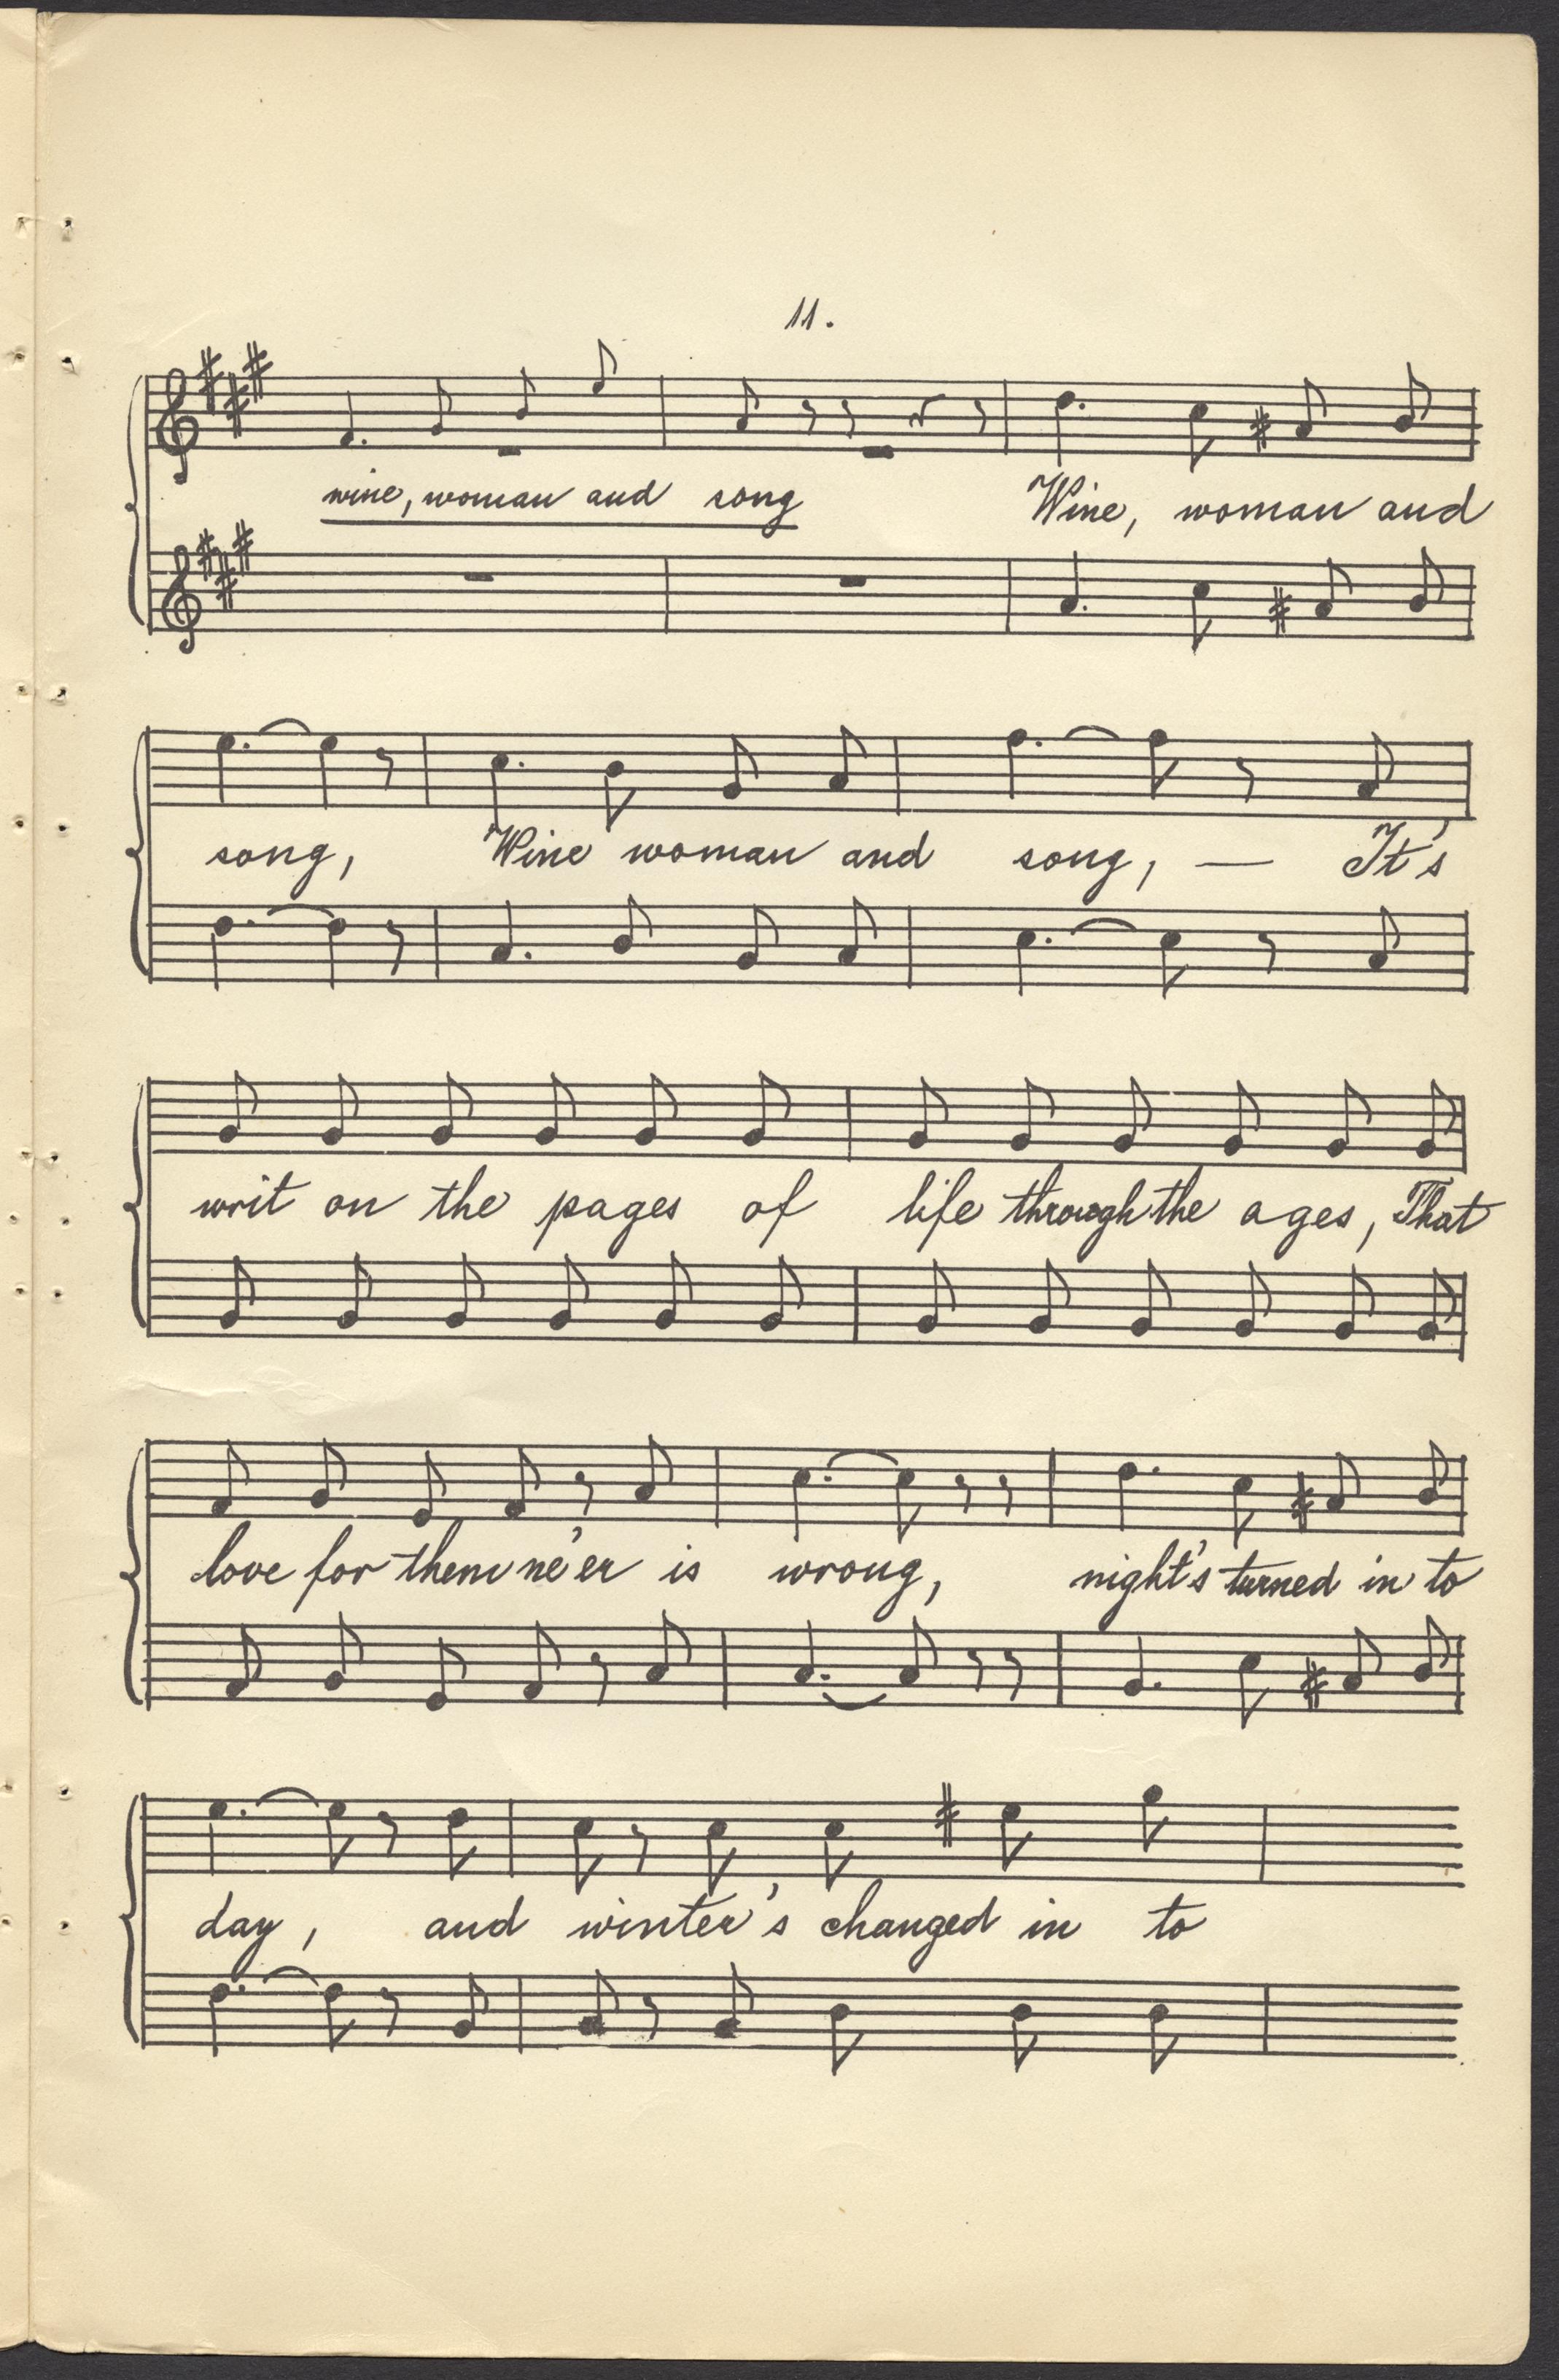 11.
wine, woman and song Wine, woman and
song, Wine woman and song, — It's
writ on the pages of life through the ages, That
love for them ne'er is wrong, night's turned in to
day, and winter's changed in to